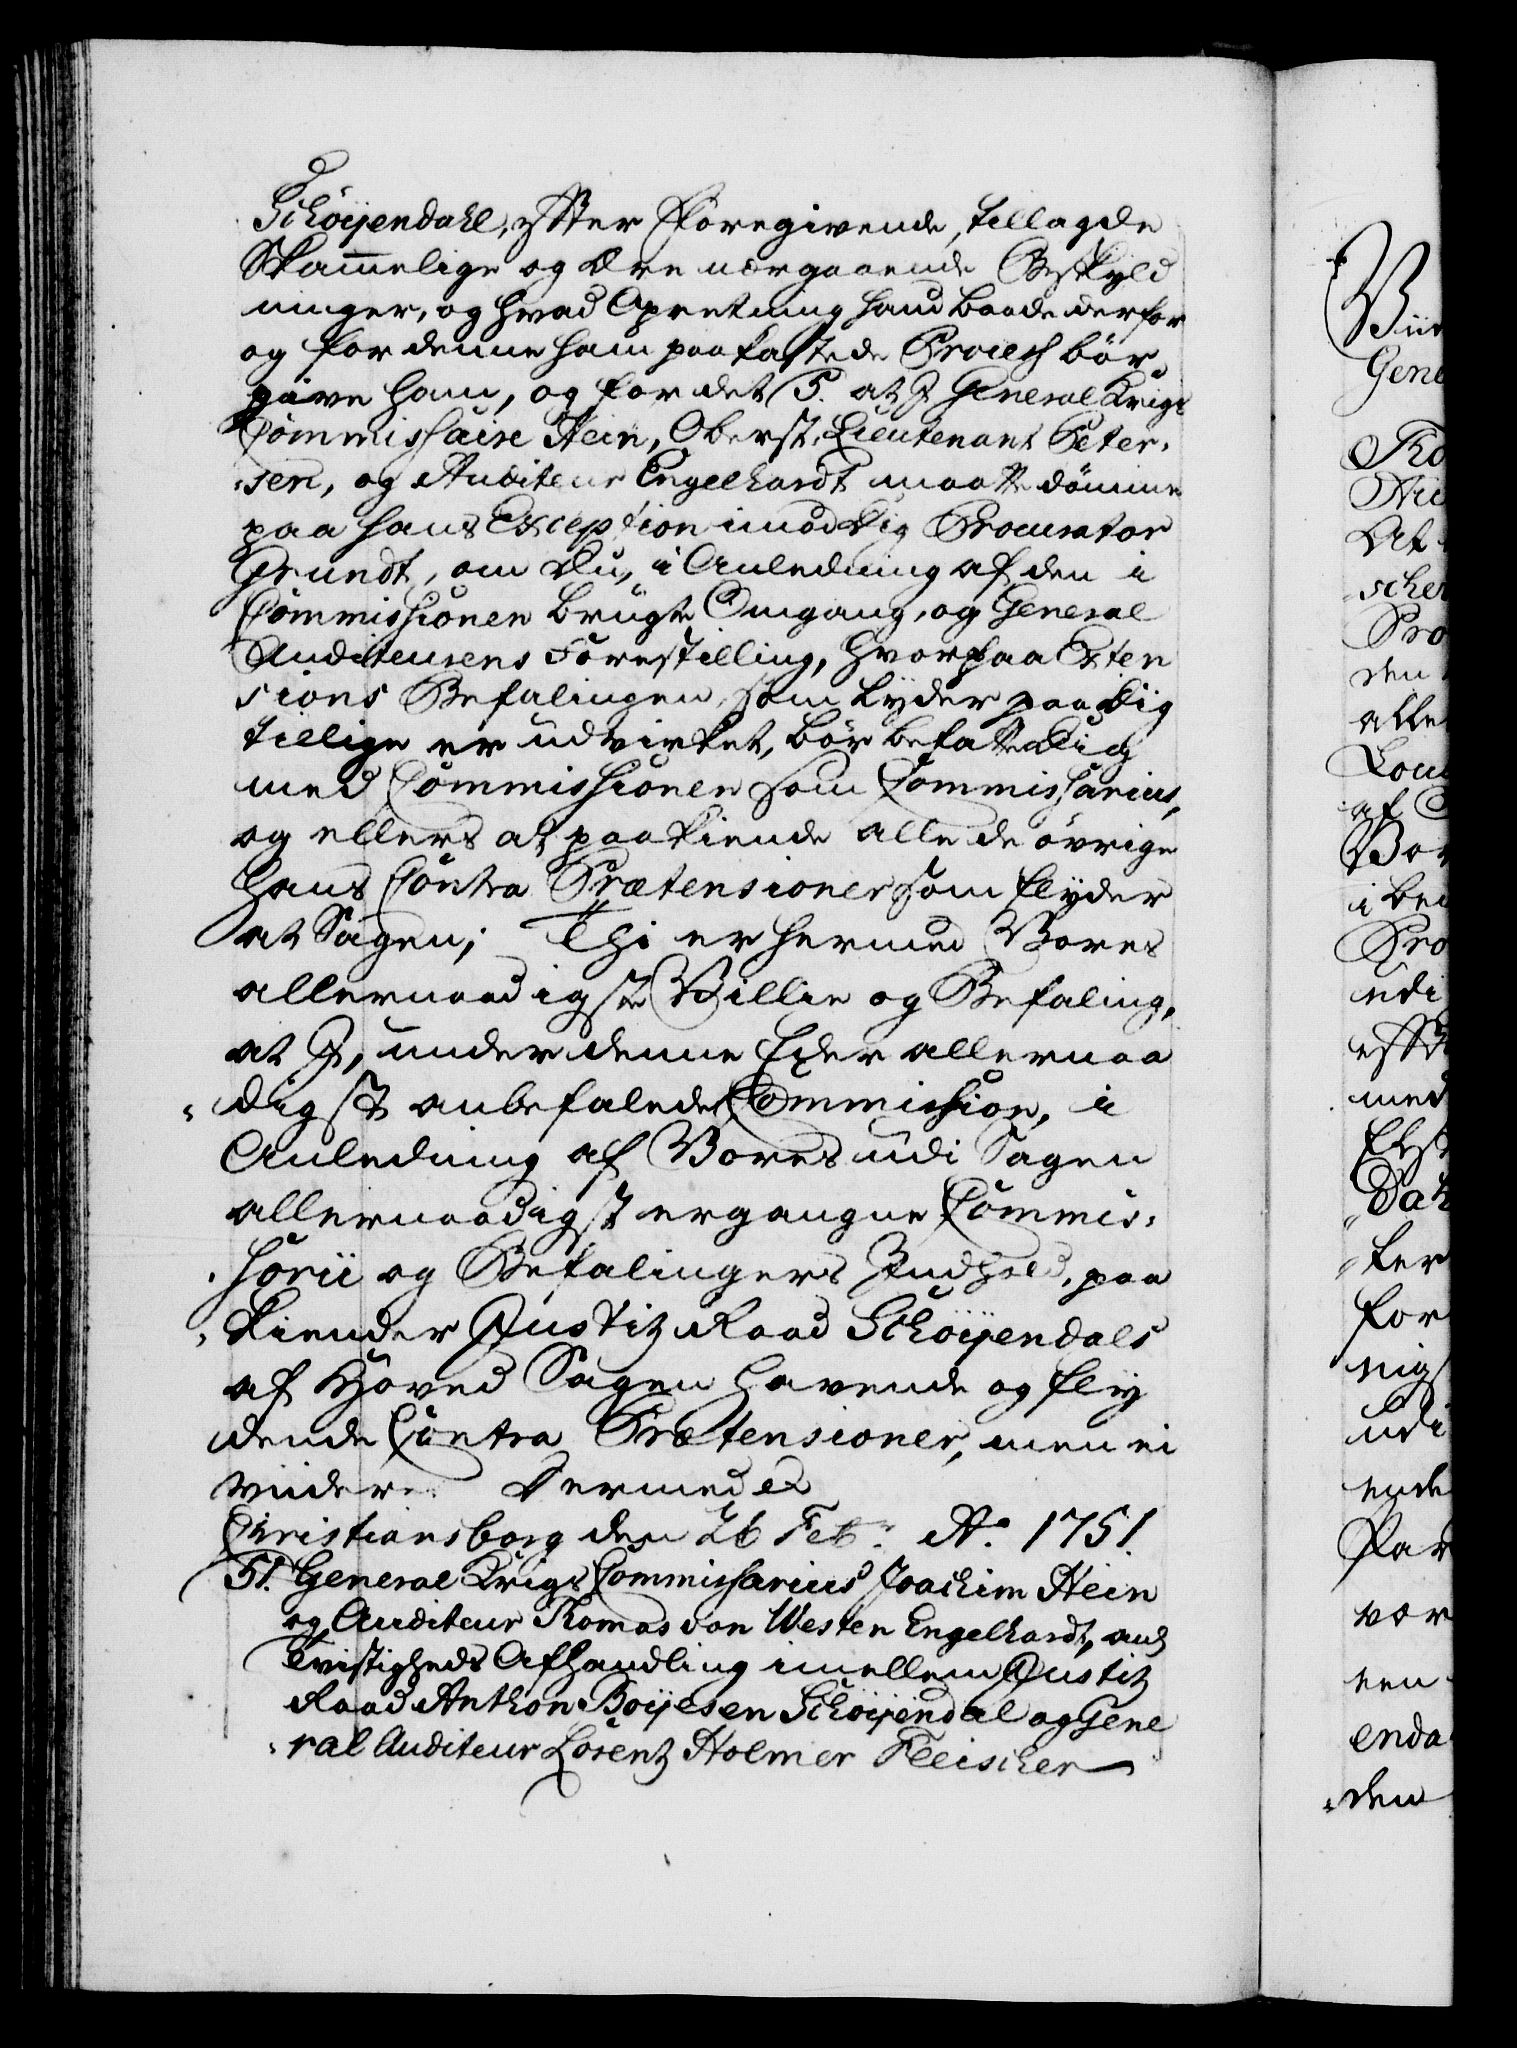 Schöÿendahl, efter Foregivende, tillagde
Skam̅elige og Ære nærgaaende Beskyld
ninger, og hvad Opretning hand baade derfor
og for denne ham paakastede Process bör
give ham, og for det 5. at I General Krigs
Commissaire Hein, Oberst-Lieutenant Peter-
-sen, og Auditeur Engelhardt maatte dömme
paa hans Exception imod Dig Procurator
Grundt, om Du, i Anledning af den i
Commissionen brugte Omgang, og General
Auditeurens Forestilling, hvorpaa Exten
sions Befalingen, som lyder paa Dig
tillige er udvirket, bör befatte Dig
med Commissionen som Commissarius,
og ellers at paakiende alle de övrige
hans Contra Prætensioner som flyder
at Sagen; Thi er hermed Vores
allernaadigste Villie og Befaling,
at I, under denne Eder allernaa
digst anbefalede Commission, i
Anledning af Vores udi Sagen
allernaadigst ergangne Commis-
-sorii og Befalingers Indhold, paa
-kiender Justitz Raad Schöÿendals
af Hoved Sagen havende og flÿ
dende Contra Prætensioner, men ei
viidere. Dermed &
Christiansborg den 26 Febr: Ao 1751.
51. General Krigs Commissarius Joachim Hein
og Auditeur Thomas von Westen Engelhardt, anl
Tvistigheds Afhandling imellem Justitz
Raad Anthon Boÿesen Schöÿendal og Gene
-ral Auditeur Lorentz Holmer Fleischer
Gene
scher
Pro
den
alle
af
i
Pro
udi
med
Dah
ter
for
nigs
udi
ende
Par
vor
enda
den